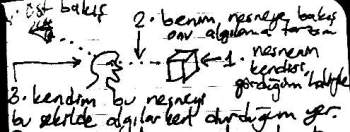 üst bakış
2. benim nesneye bakış
onu algılama tarzım
1. nesnenin
kendisi,
gördüğüm haliyle
3. kendim bu nesneyi
bu şekilde algılarken durduğum yer.